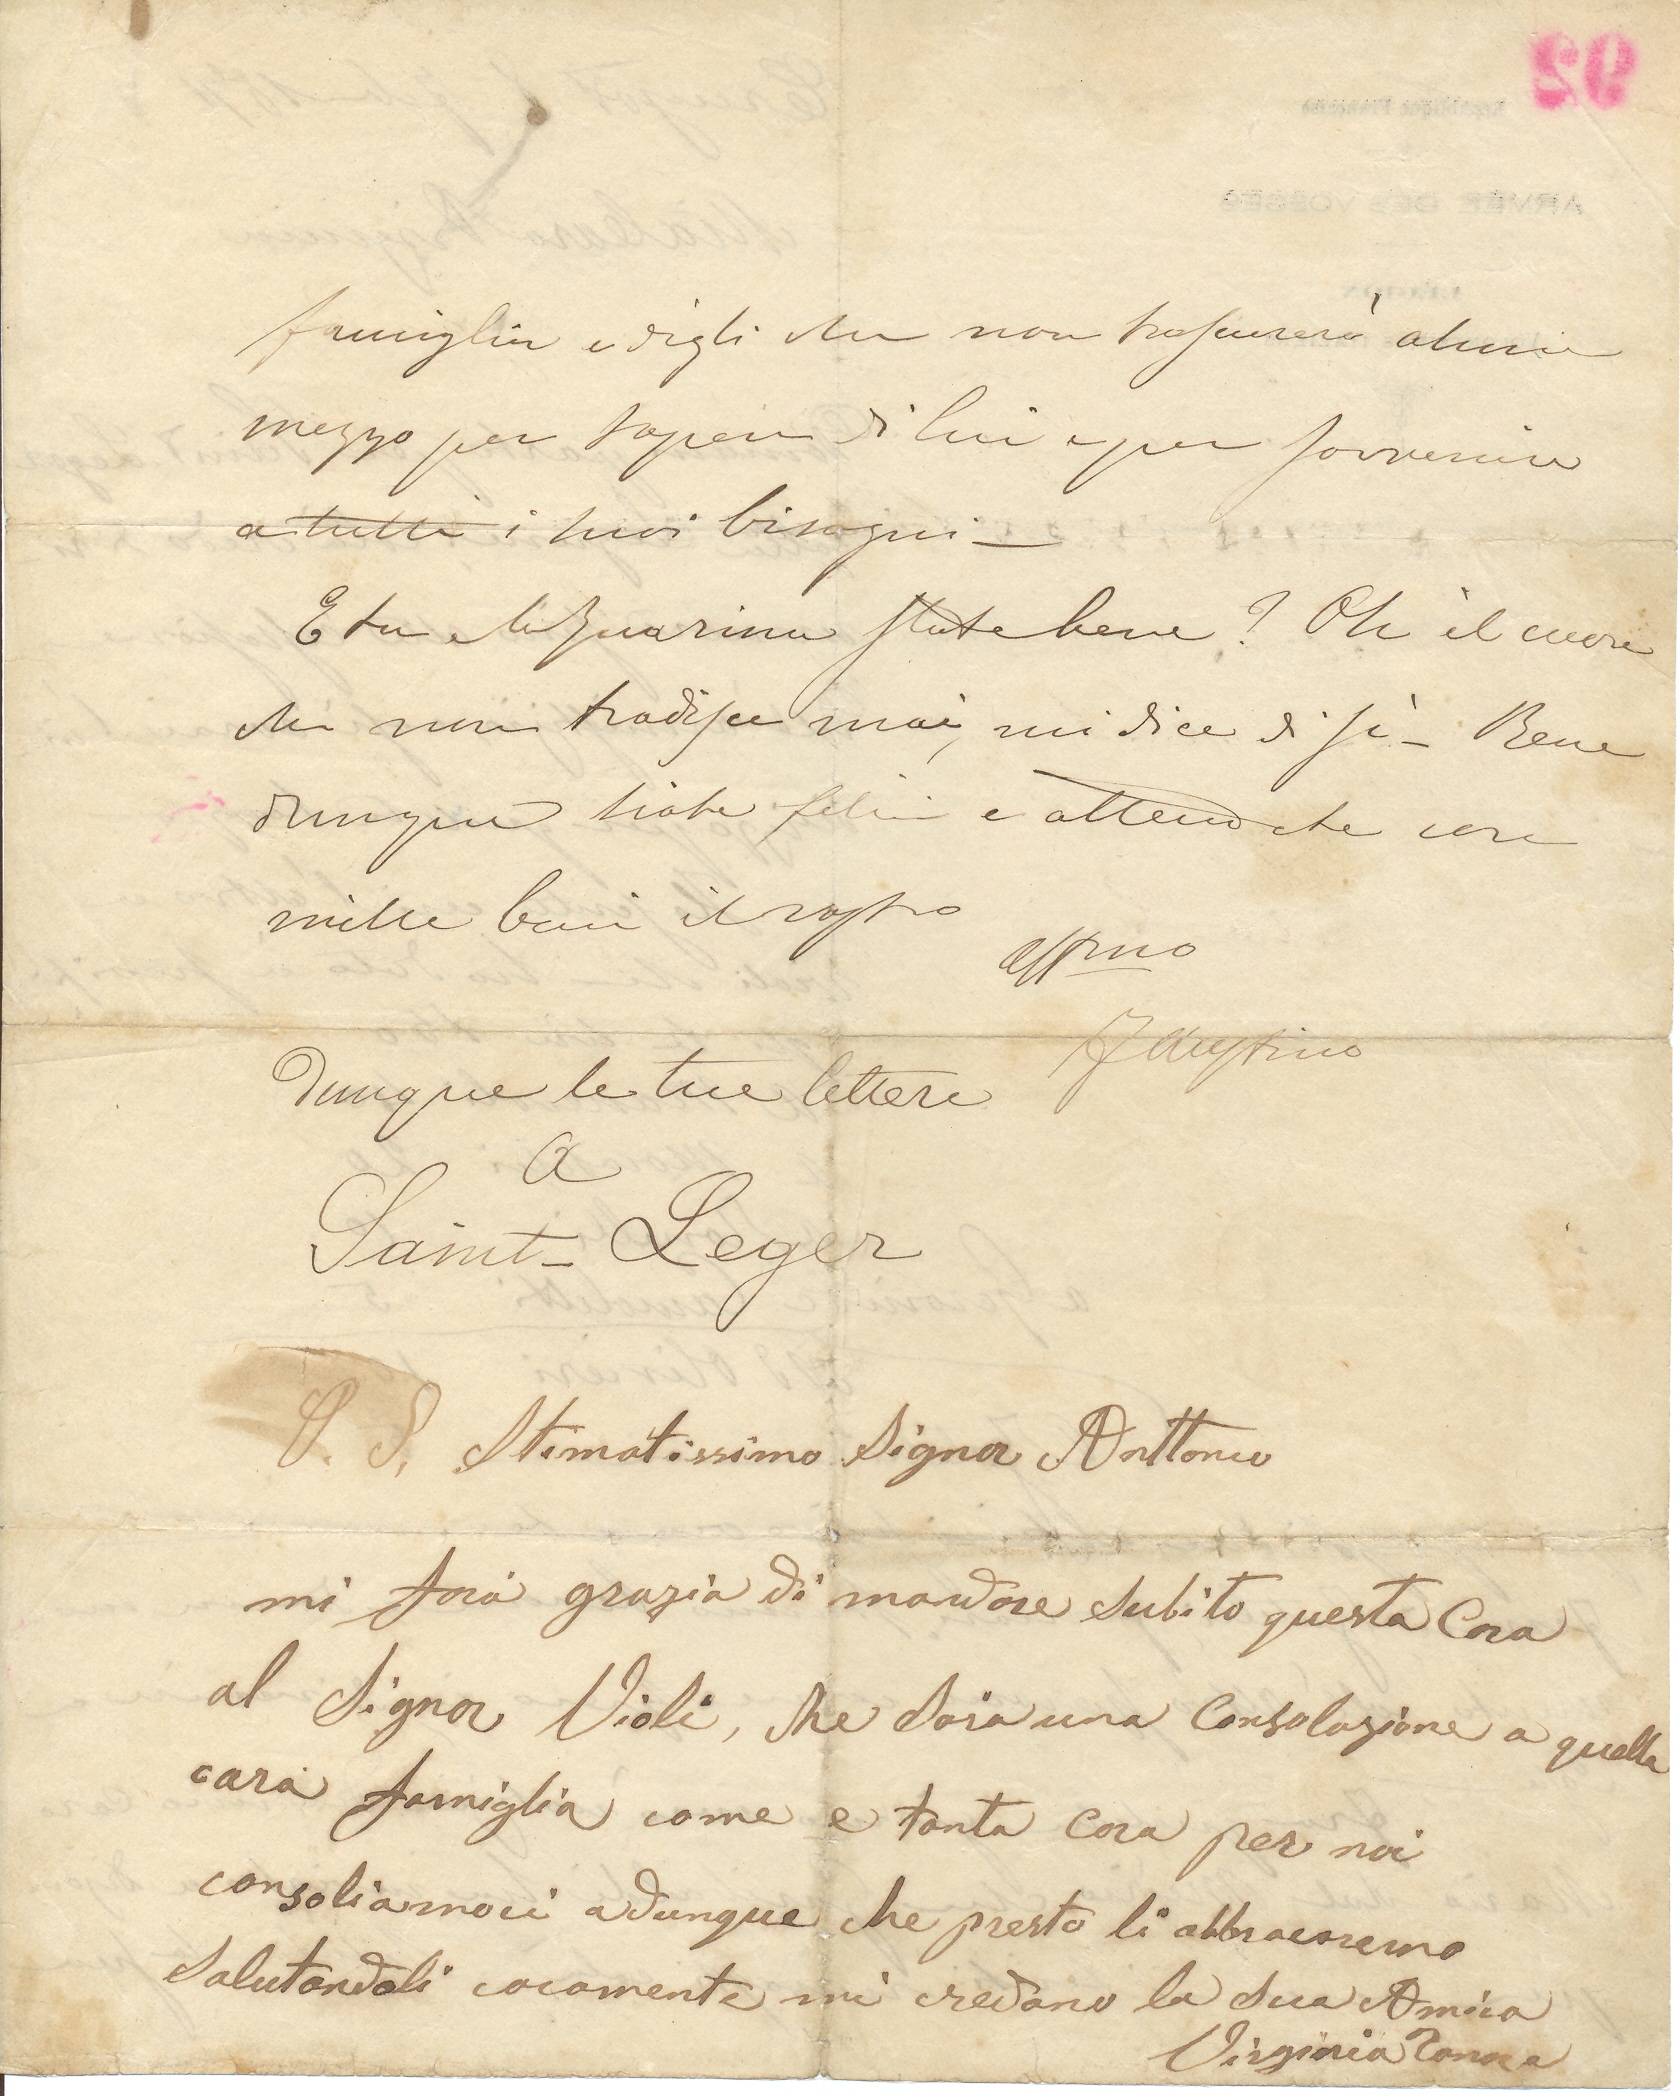 92
famiglia e digli che non trascurerà alcun
mezzo per sapere di lui e per sovvenire
a tutti i suoi bisogni —
E tu e la Zuarina state bene? Oh il cuore
che non tradisce mai, mi dice di sì — Bene
dunque siate felici e attendete con
mille baci il vostro
affmo
Faustino
Dunque le tue lettere
a
Saint-Leger
P. S. Stimatissimo Signor Anttonio
mi farà grazia di mandare subito questa Cara
al Signor Violi, che sara una Consolazione a quella
cara famiglia come e tanta Cara per noi
consoliamoci adunque che presto li abbracaremo
Salutandoli caramente mi credano la Sua Amica
Virginia